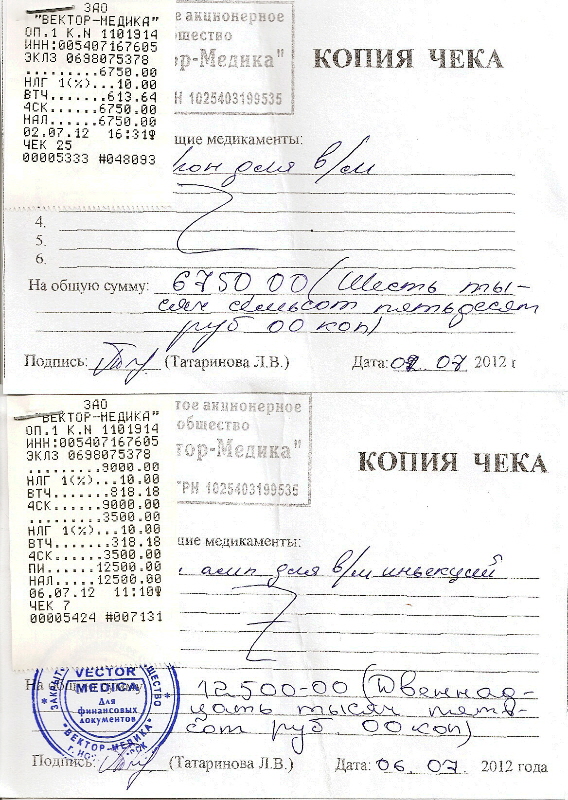 ЗАО
"ВЕКТОР-МЕДИКА"
ОП.1 К.N 1101914
ИНН:005407167605
ЭКЛЗ 0698075378
.........6750.00
НЛГ 1(%)...10.00
ВТЧ.......613.64
4СК......6750.00
НАЛ......6750.00
02.07.12 16:31
ЧЕК 25
00005333 #048093
ое акционерное
общество
ор-Медика"
Н 1025403199535
КОПИЯ ЧЕКА
щие медикаменты:
для в/м
4.
5.
6.
На общую сумму: 6750 00 (Шесть ты-
сяч семьсот пятьдесят
руб 00 коп)
Подпись: (Татаринова Л.В.) Дата: 02 07 2012 г
ЗАО
"ВЕКТОР-МЕДИКА"
ОП.1 К.N 1101914
ИНН:005407167605
ЭКЛЗ 0698075378
.........9000.00
НЛГ 1(%)...10.00
ВТЧ.......818.18
4СК......9000.00
.........3500.00
НЛГ 1(%)...10.00
ВТЧ.......318.18
4СК......3500.00
ПИ......12500.00
НАЛ.....12500.00
06.07.12 11:10
ЧЕК 7
00005424 #007131
тое акционерное
общество
тор-Медика"
ГРН 1025403199535
КОПИЯ ЧЕКА
щие медикаменты:
амп для в/м инъекций
VECTOR
MEDICA
Для
финансовых
документов
"ВЕКТОР-МЕДИКА"
12500-00 (Двенад-
цать тысяч пять-
сот руб 00 коп)
Подпись: (Татаринова Л.В.) Дата: 06 07 2012 года